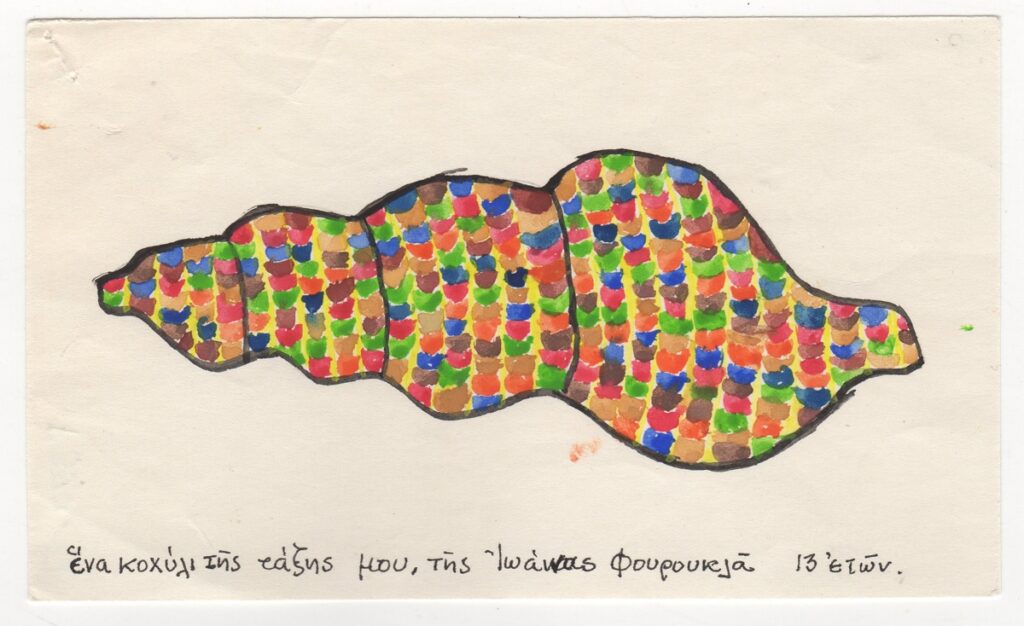 ἕνα κοχύλι τῆς τάξης μου, τῆς Ἰωάννας Φουρουκλᾶ 13 ἐτῶν.